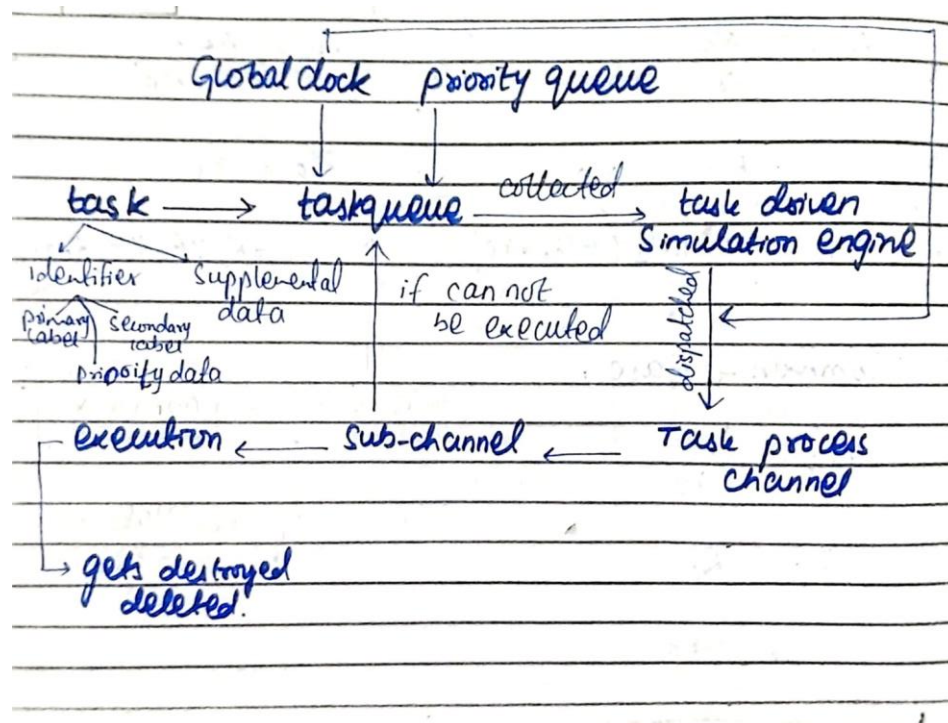 Global clock priority queue
task taskqueue collected task driven
simulation engine
identifier supplemental
data
if can not
be executed
primary
label
secondary
label
priority data
dispatched
execution sub-channel Task process
channel
gets destroyed
deleted.